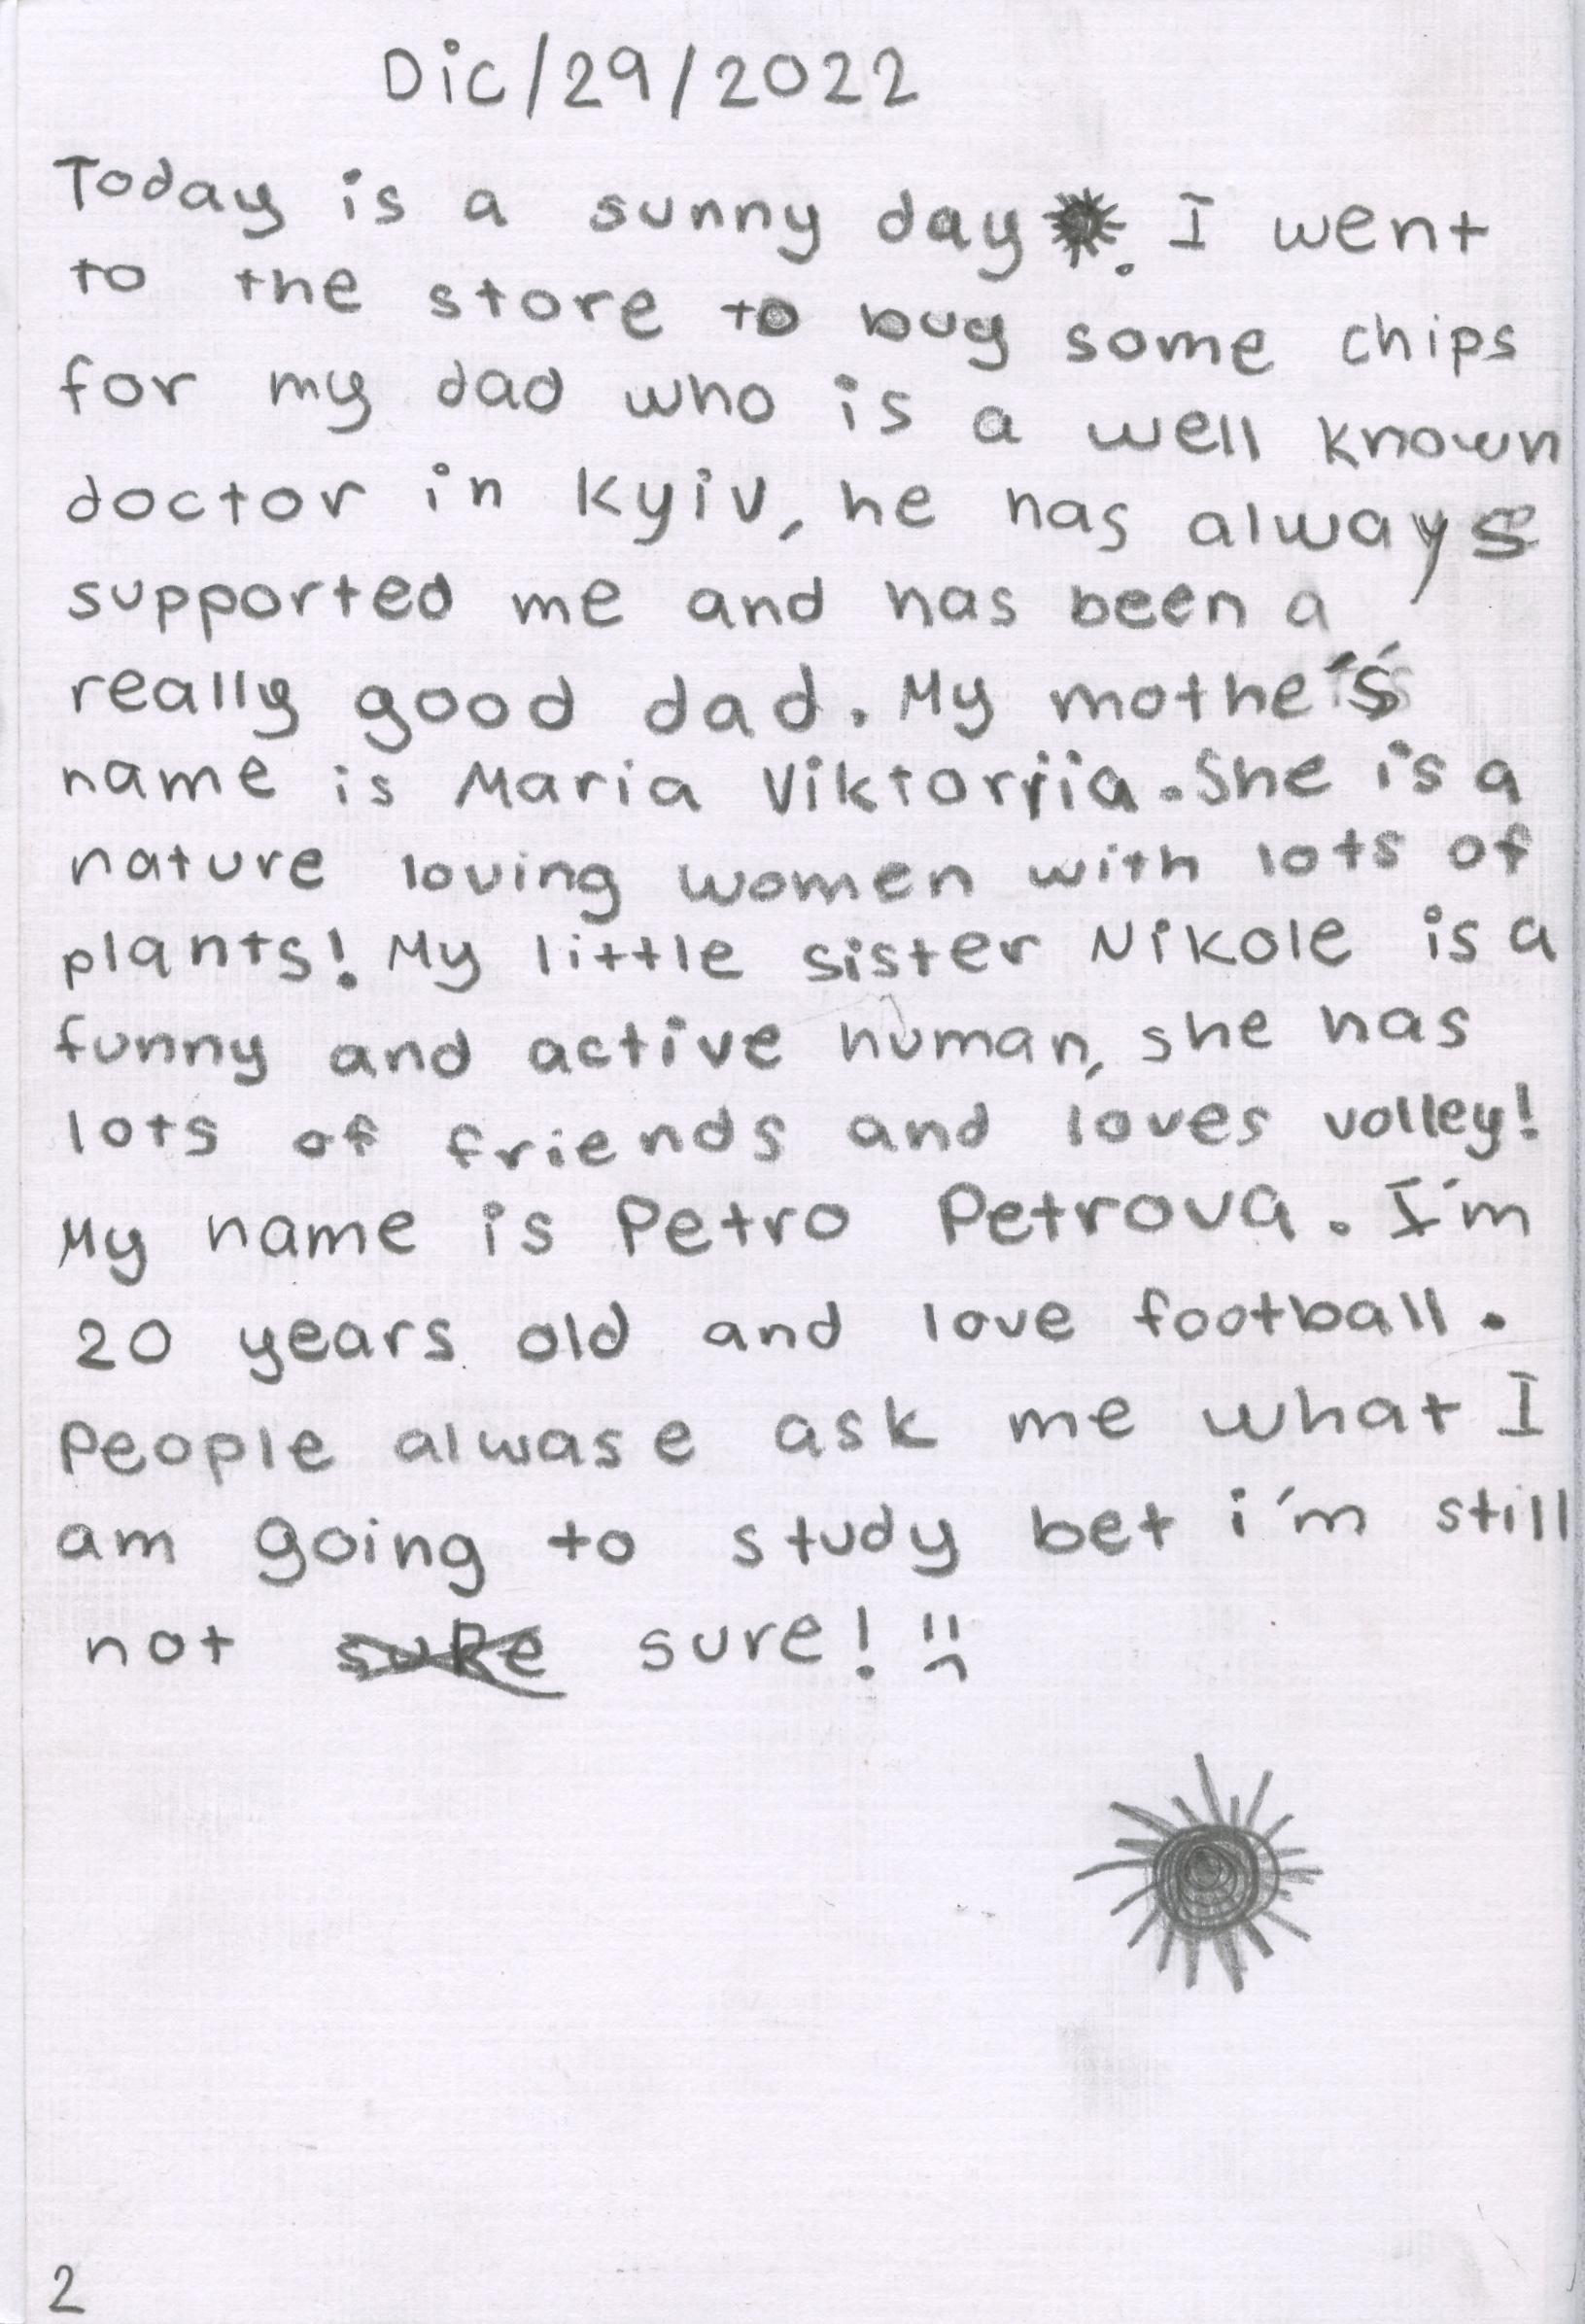 Dic/29/2022
Today is a sunny day. I went
to the store to buy some chips
for my dad who is a well known
doctor in kyiv, he has always
supported me and has been a
really good dad. My mothe's
name is Maria Viktoriia. She is a
nature loving women with lots of
plants! My little sister Nikole is a
funny and active human, she has
lots of friends and loves volley!
My name is Petro Petrova. I'm
20 years old and love football.
People alwase ask me what I
am going to study bet i'm still
not suRe sure! :(
2